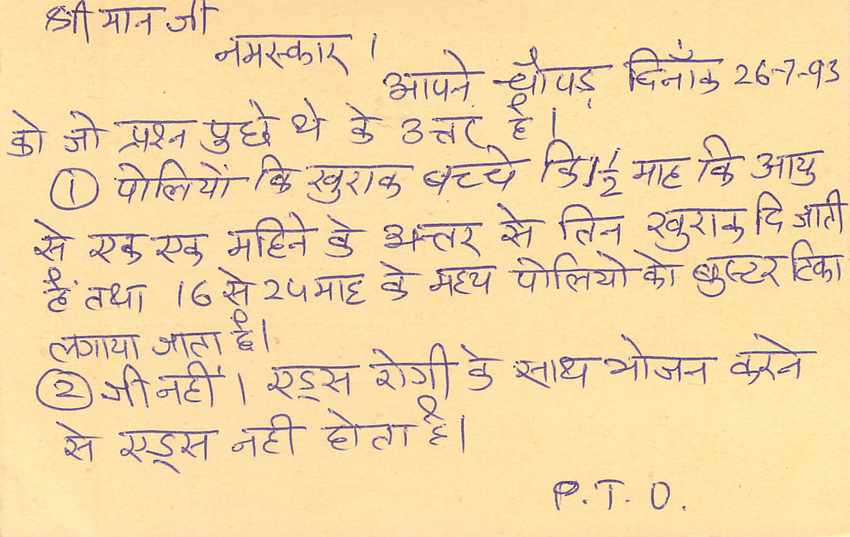 श्रीमान जी
नमस्कार ।
आपने चौपड़ दिनाँक 26-7-93
को जो प्रश्न पुछे थे के उत्तर है ।
① पोलियों कि खुराक बच्चे कि 1½ माह कि आयु
से एक एक महिने के अन्तर से तिन खुराक दि जाती
हैं तथा 16 से 24 माह के मध्य पोलियो को बुस्टर टिका
लगाया जाता है।
② जी नहीं । एड्स रोगी के साथ भोजन करने
से एड्स नही होता है।
P.T.O.